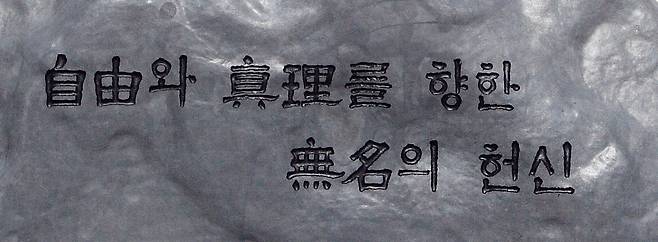 自由와 真理를 향한
無名의 헌신